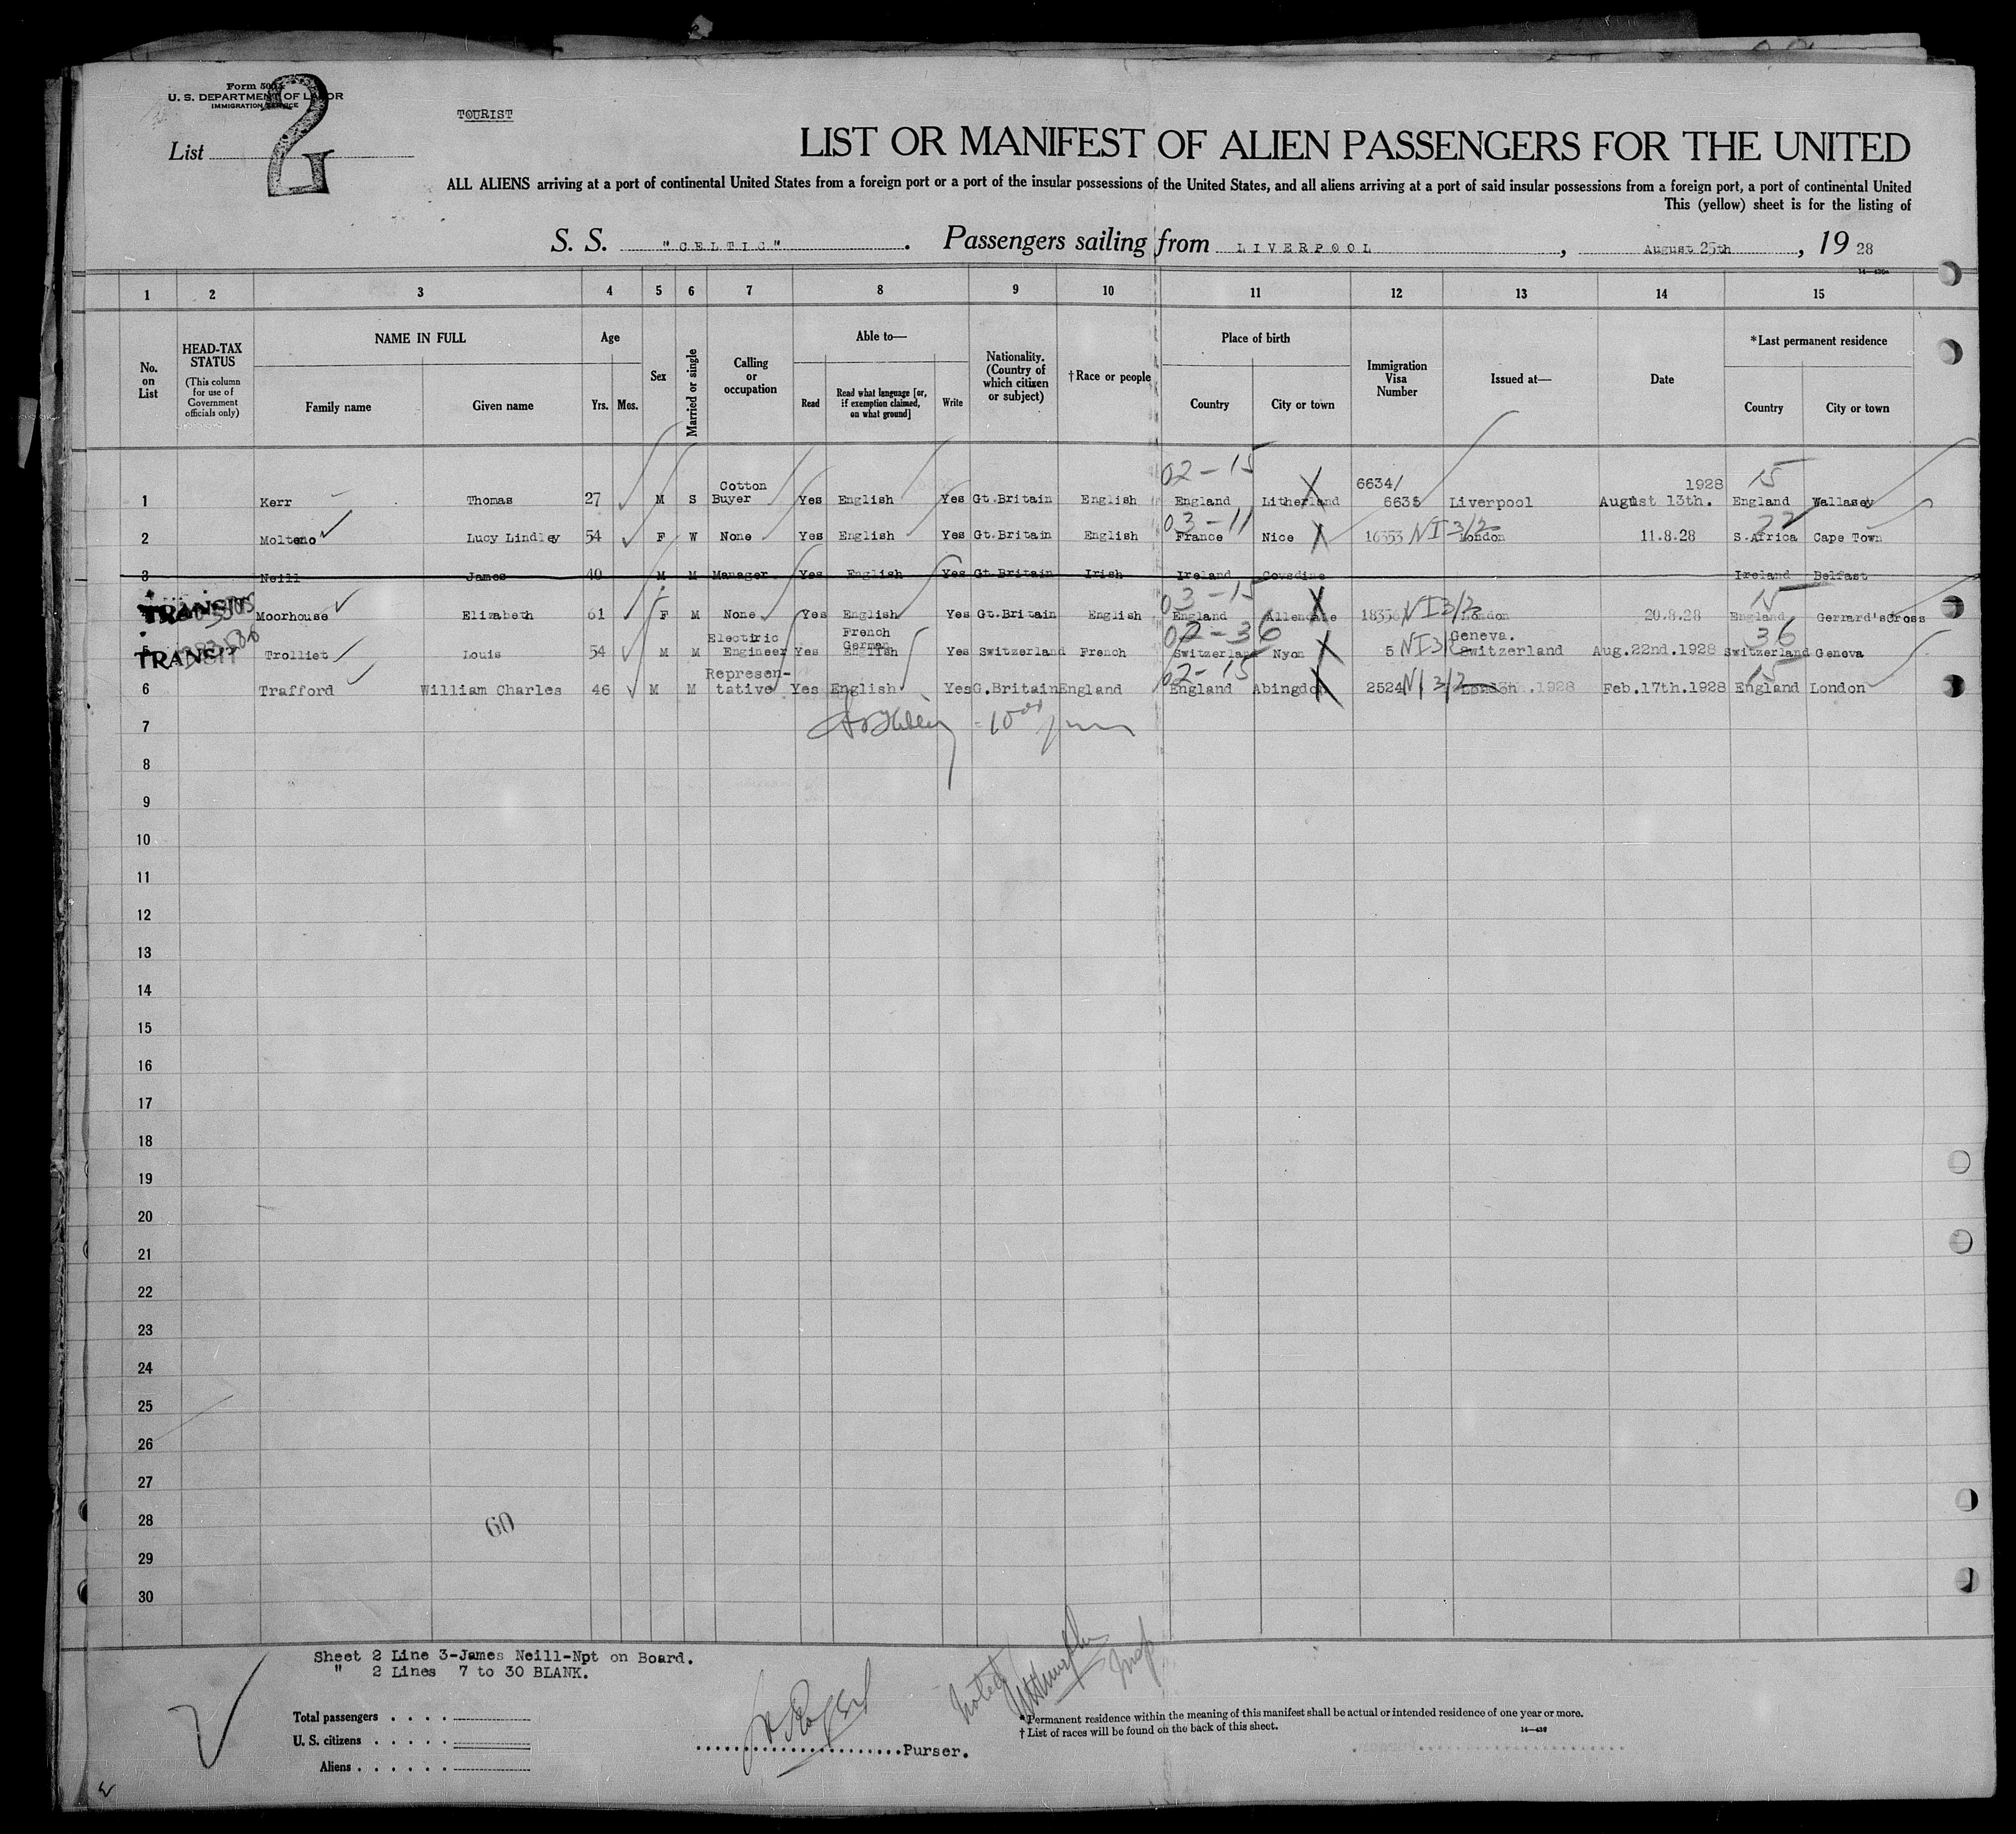 Form 500
U. S. DEPARTMENT OF LABOR
IMMIGRATION SERVICE
List 2
TOURIST
LIST OR MANIFEST OF ALIEN PASSENGERS FOR THE UNITED
ALL ALIENS arriving at a port of continental United States from a foreign port or a port of the insular possessions of the United States, and all aliens arriving at a port of said insular possessions from a foreign port, a port of continental United
This (yellow) sheet is for the listing of
S. S. "CELTIC". Passengers sailing from LIVERPOOL, August 25th, 19 28
1 2 3 4 5 6 7 8 9 10 11 12 13 14 15
No. on List
HEAD-TAX STATUS (This column for use of Government officials only)
NAME IN FULL
Family name Given name
Age
Yrs. Mos.
Sex
Married or single
Calling or occupation
Able to—
Read
Read what language [or, if exemption claimed, on what ground]
Write
Nationality. (Country of which citizen or subject)
†Race or people
Place of birth
Country City or town
Immigration Visa Number
Issued at—
Date
*Last permanent residence
Country City or town
02-15 15
1 Kerr Thomas 27 M S Cotton Buyer Yes English Yes Gt.Britain English England Litherland 6634/ 6635 Liverpool August 13th. 1928 England Wallasey
03-11 22
2 Molteno Lucy Lindley 54 F W None Yes English Yes Gt.Britain English France Nice 16353 NI 3/2 London 11.8.28 S.Africa Cape Town
3 Neill James 40 M M Manager Yes English Yes Gt.Britain Irish Ireland Ireland Belfast
03-15 15
TRANSIT Moorhouse Elizabeth 61 F M None Yes English Yes Gt.Britain English England Allendale 18336 NI 3/2 London 20.8.28 England Gerrard'sCross
02-36 36
5 TRANSIT Trolliet Louis 54 M M Electiric Engineer Yes French German English Yes Switzerland French Switzerland Nyon 5 NI 3/2 Geneva. Switzerland Aug.22nd.1928 Switzerland Geneva
02-15 15
6 Trafford William Charles 46 M M Represen-tative Yes English Yes G.Britain England England Abingdon 2524 NI 3/2 London Feb.17th.1928 England London
7
8
9
10
11
12
13
14
15
16
17
18
19
20
21
22
23
24
25
26
27
28
60
29
30
Sheet 2 Line 3-James Neill-Npt on Board.
" 2 Lines 7 to 30 BLANK.
Total passengers
U. S. citizens
Aliens
Purser.
Noted
Insp
*Permanent residence within the meaning of this manifest shall be actual or intended residence of one year or more.
†List of races will be found on the back of this sheet.